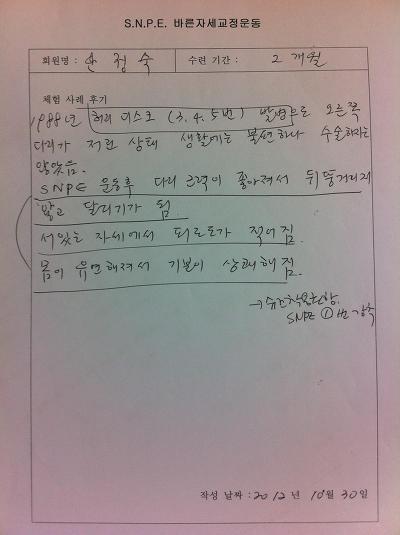 S.N.P.E. 바른자세교정운동
회원명 : 안정숙 수련 기간 : 2개월
체험 사례 후기
1988년 허리 디스크 (3.4.5번) 발병으로 오른쪽
다리가 저린 상태 생활에는 불편하나 수술하지는
않았음.
SNPE 운동후 다리 근력이 좋아져서 뒤뚱거리지
않고 달리기가 됨
서있는 자세에서 피로도가 적어짐.
몸이 유연해져서 기분이 상쾌해짐.
SNPE ① 번
작성 날짜 : 2012년 10월 30일